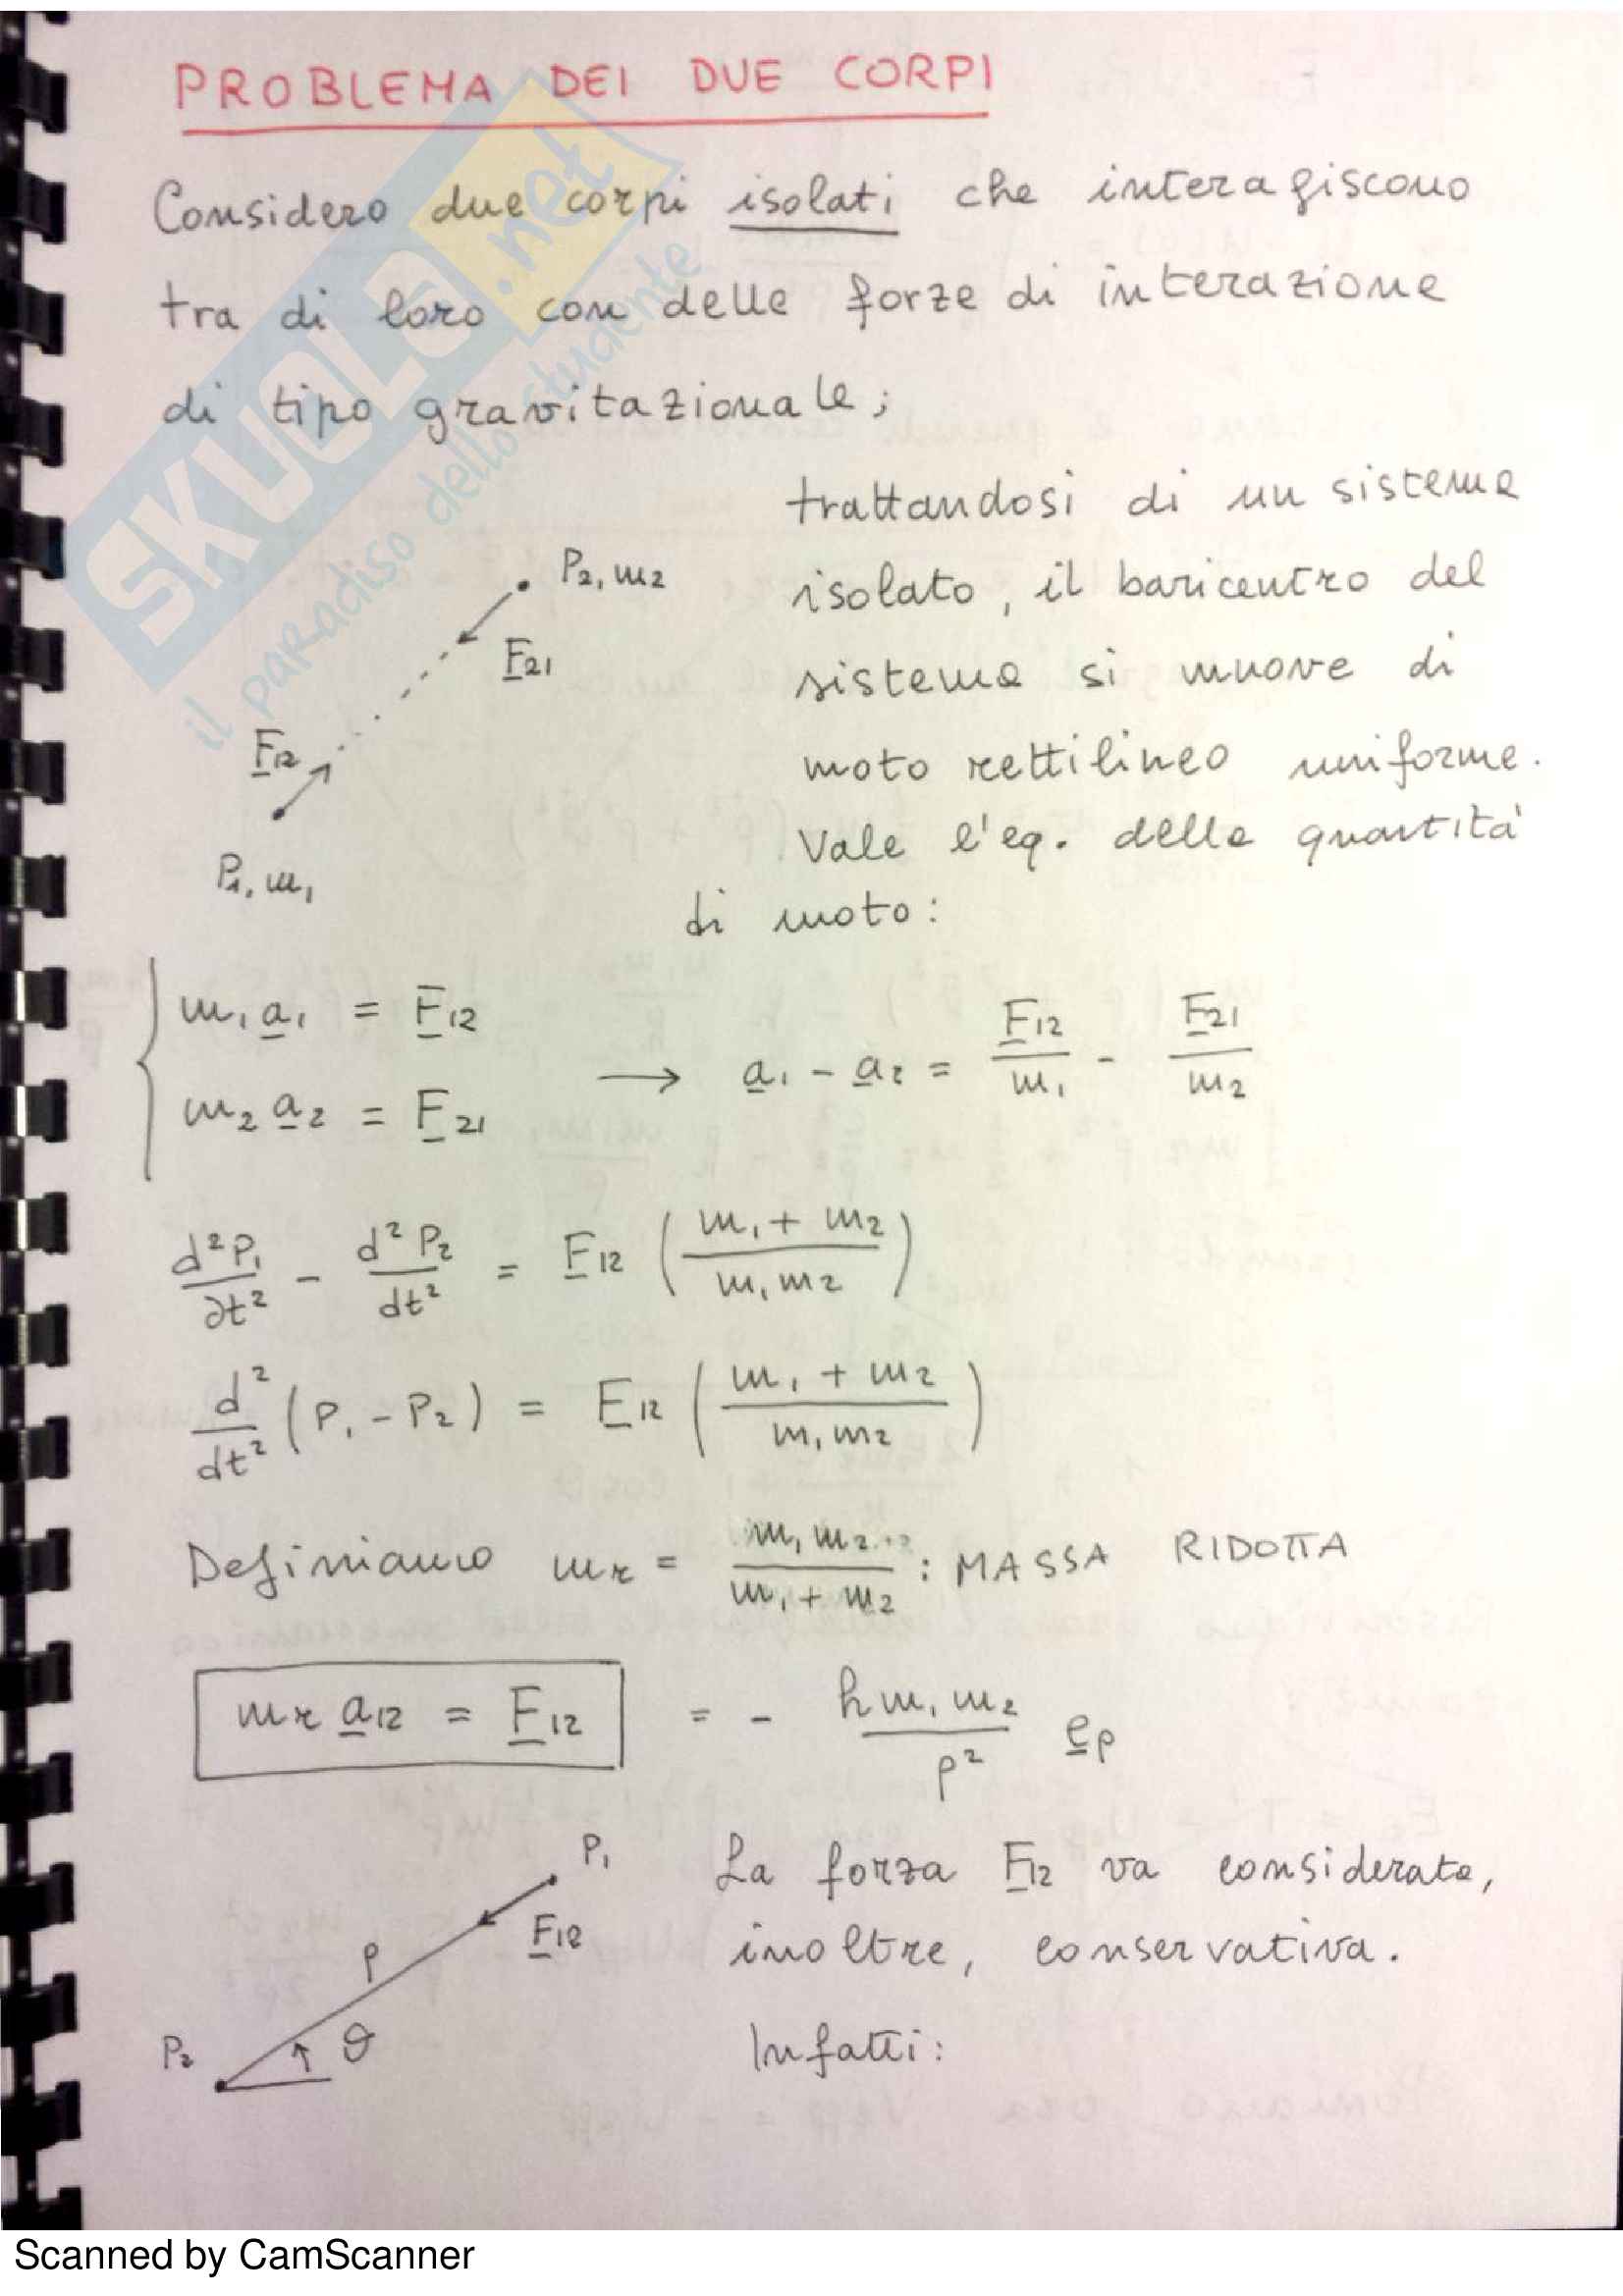 PROBLEMA DEI DUE CORPI
Considero due corpi isolati che interagiscono
tra di loro con delle forze di interazione
di tipo gravitazionale;
trattandosi di un sistema
isolato, il baricentro del
sistema si muove di
moto rettilineo uniforme.
Vale l'eq. della quantità
di moto:
P2, m2
F21
F12
P1, m1
m1 a1 = F12
m2 a2 = F21
→ a1 - a2 = F12/m1 - F21/m2
d²P1/dt² - d²P2/dt² = F12 (m1 + m2 / m1 m2)
d²/dt² (P1 - P2) = F12 (m1 + m2 / m1 m2)
Definiamo mr = m1 m2 / m1 + m2 : MASSA RIDOTTA
mr a12 = F12 = - h m1 m2 / ρ² eρ
P1
F12
ρ
P2
θ
La forza F12 va considerata,
inoltre, conservativa.
Infatti:
SKUOLA.net
il paradiso dello studente
Scanned by CamScanner